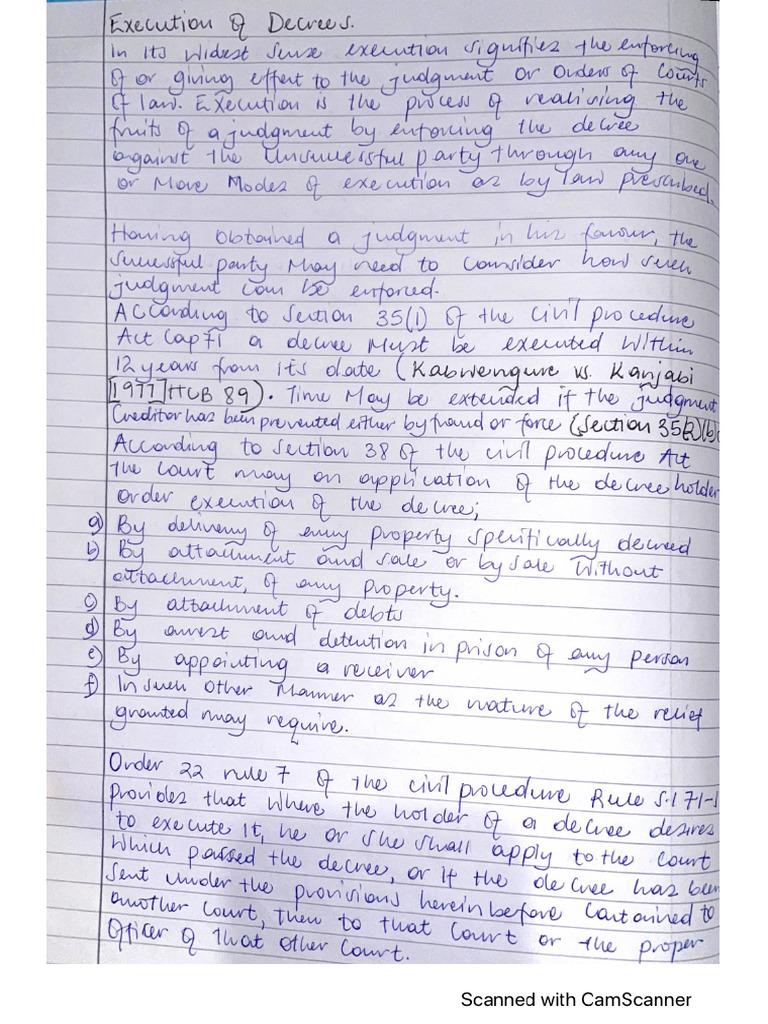 Execution of Decrees.
In its widest sense execution signifies the enforcing
of or giving effect to the judgment or orders of Courts
of law. Execution is the process of realising the
fruits of a judgment by enforcing the decree
against the unsuccessful party through any one
or more modes of execution as by law prescribed.
Having obtained a judgment in his favour, the
successful party may need to consider how such
judgment can be enforced.
According to section 35(1) of the civil procedure
Act Cap 71 a decree must be executed within
12 years from its date (Kabwengure vs. Kanjabi
[1977] HCB 89). Time may be extended if the judgment
Creditor has been prevented either by fraud or force (section 35(2)(b)
According to section 38 of the civil procedure Act
the court may on application of the decree holder
order execution of the decree;
a) By delivery of any property specifically decreed
b) By attachment and sale or by sale without
attachment, of any property.
c) By attachment of debts
d) By arrest and detention in prison of any person
e) By appointing a receiver
f) In such other manner as the nature of the relief
granted may require.
Order 22 rule 7 of the civil procedure Rule S.I 71-1
provides that where the holder of a decree desires
to execute it, he or she shall apply to the court
which passed the decree, or if the decree has been
sent under the provisions herein before contained to
another court, then to that court or the proper
officer of that other court.
Scanned with CamScanner